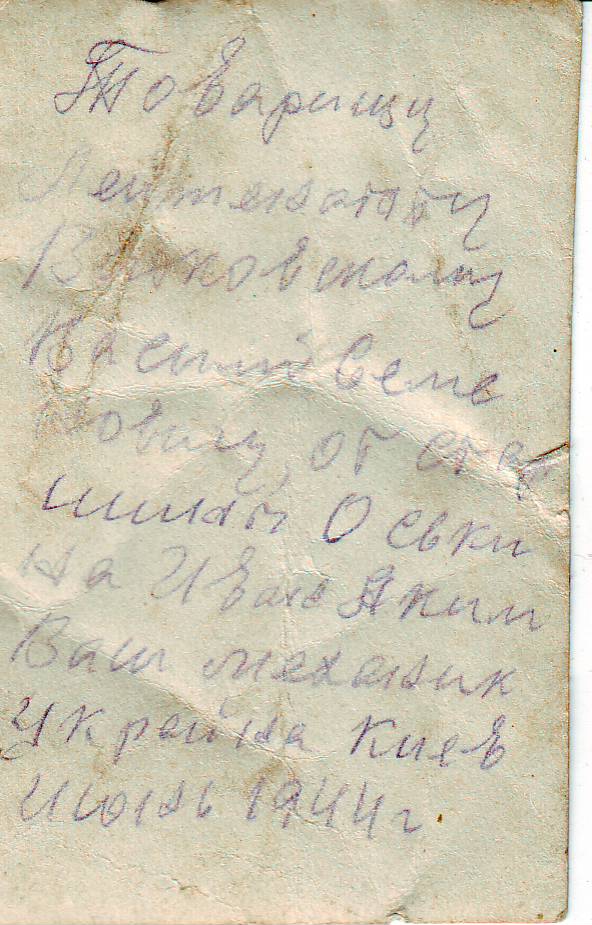 Товарищу
Лейтенанту
Василий Семе
новичу, от стар
шины Оськи
на Иван Яким
Ваш механик
Украйна Киев
июнь 1944г.